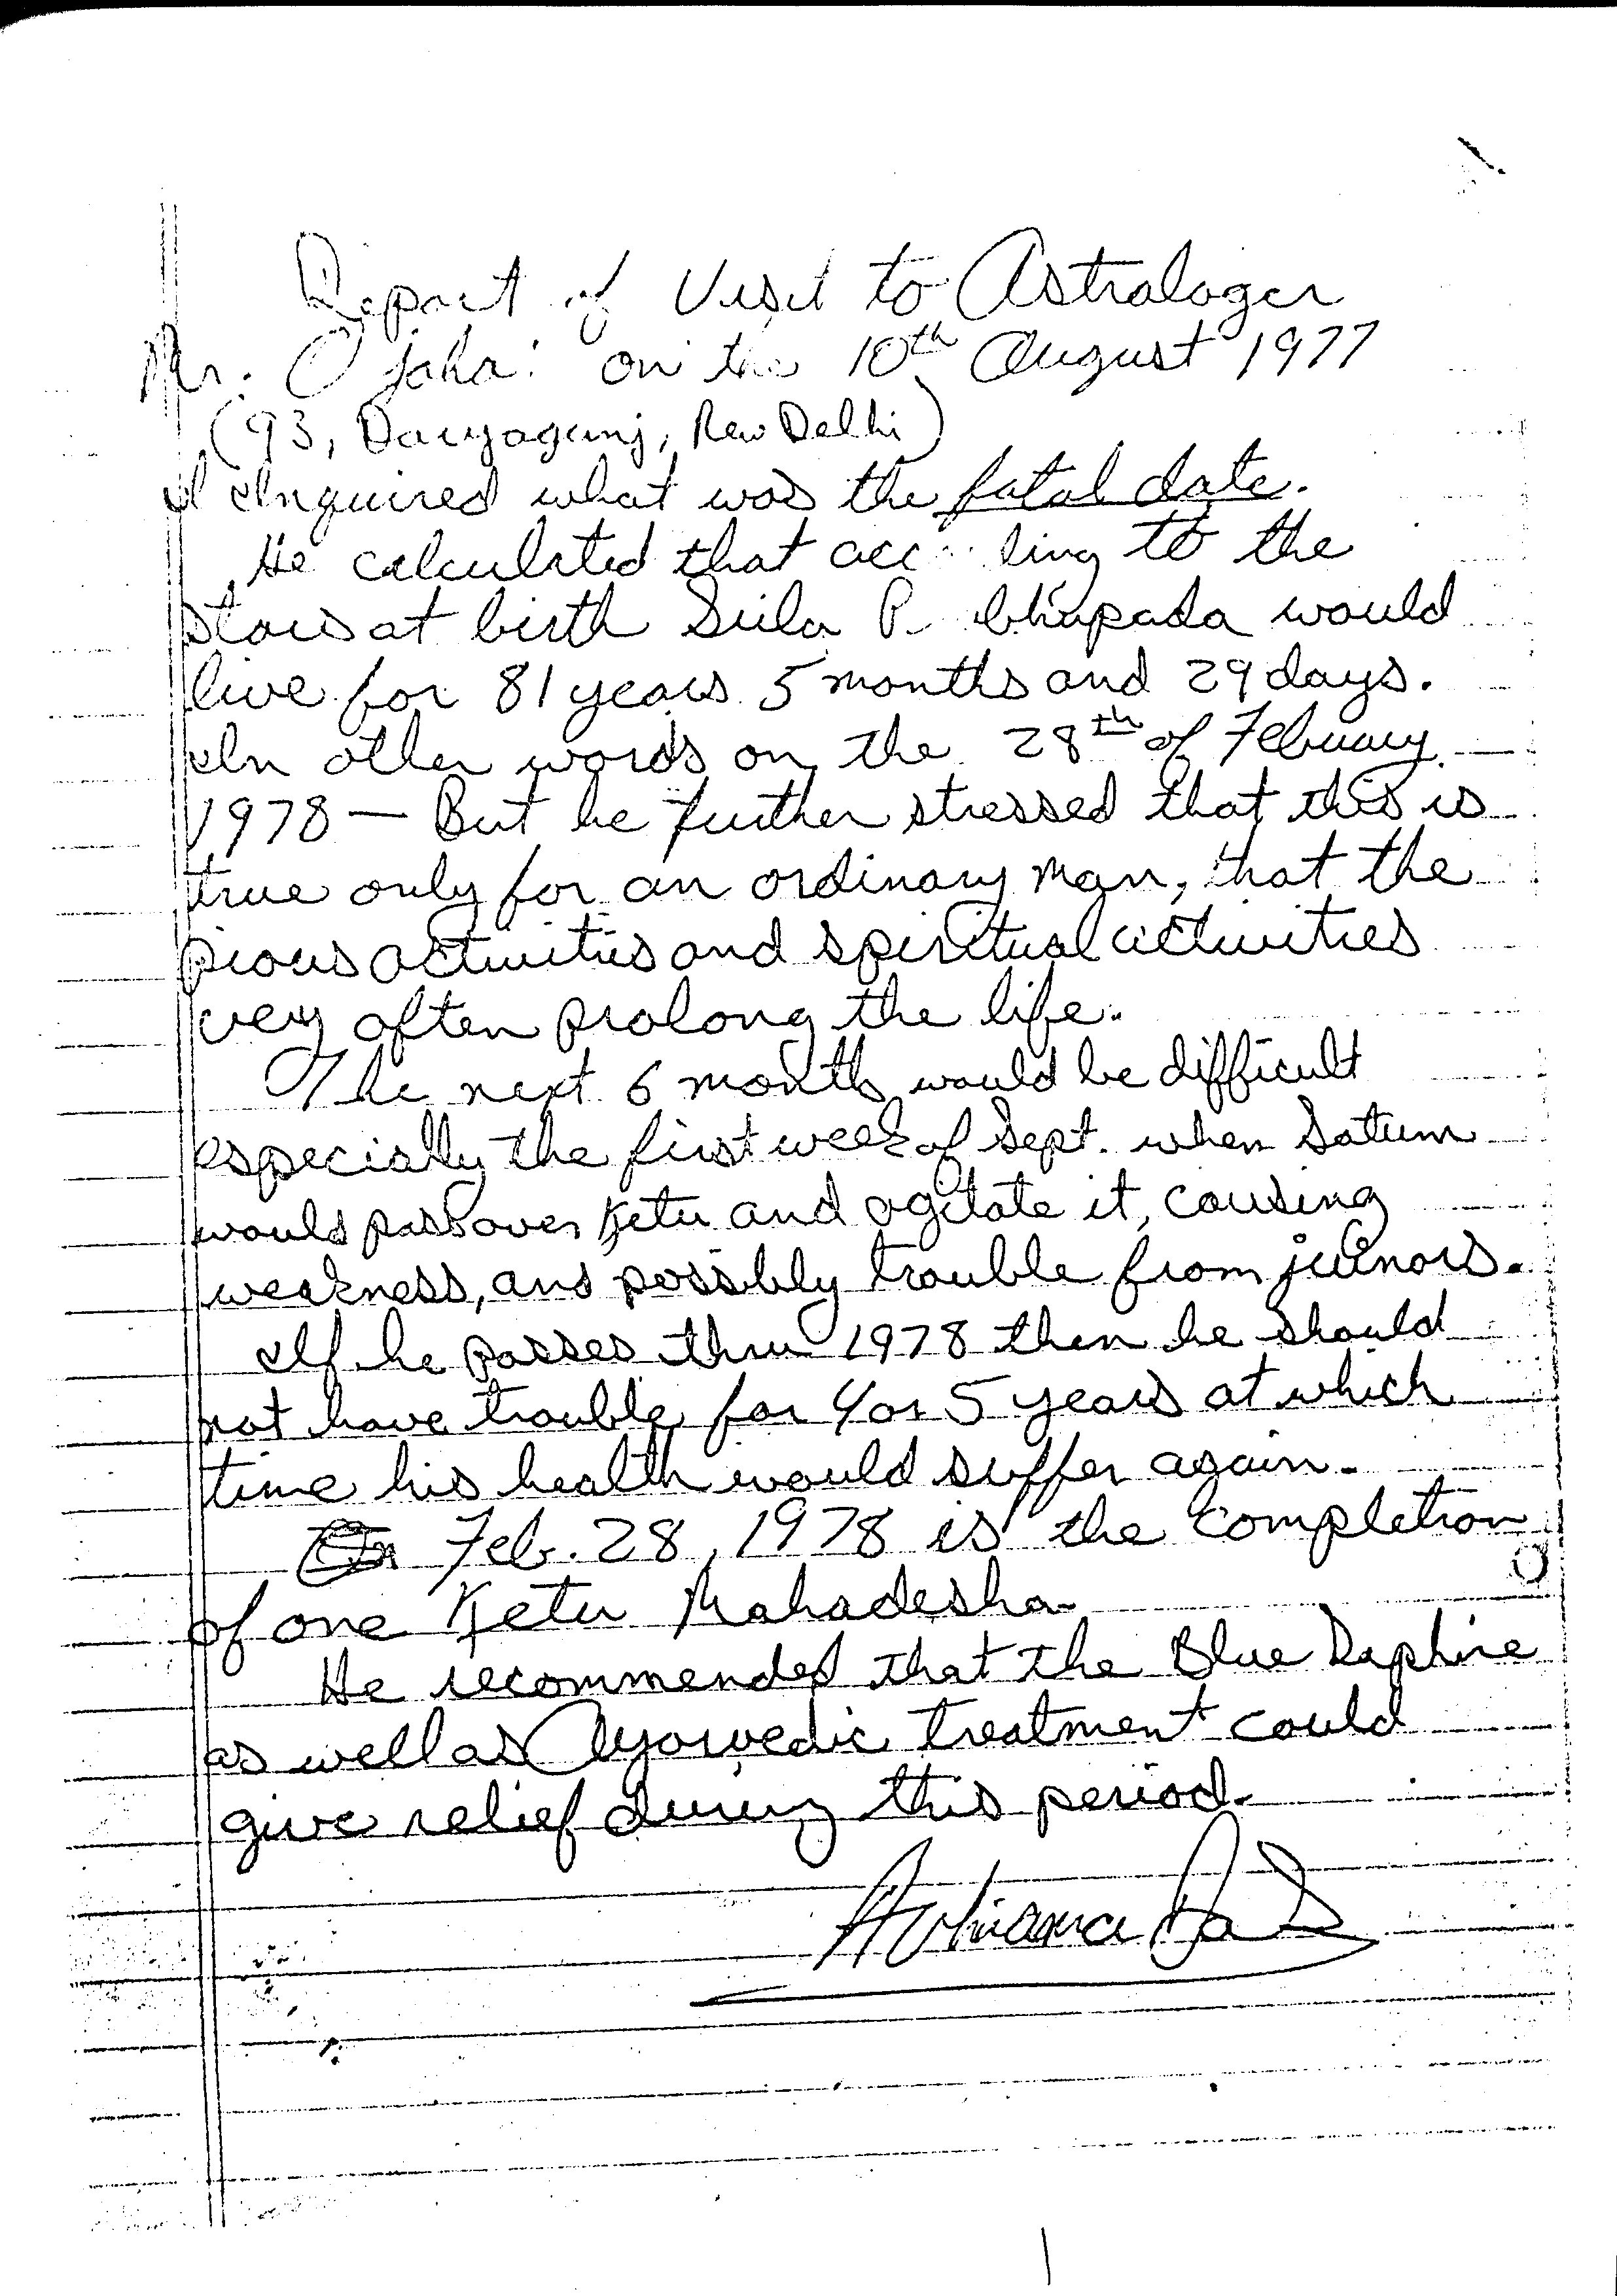 Report of Visit to Astrologer
Mr. Ojaha: on the 10th August 1977
(93, Daryagunj, New Delhi)
I Inquired what was the fatal date.
He calculated that acc ling to the
stars at birth Srila P bhupada would
live for 81 years 5 months and 29 days.
In other words on the 28th of Febuary
1978 — But he further stressed that this is
true only for an ordinary man, that the
pious activities and spiritual activities
very often prolong the life.
The next 6 month would be difficult
especially the first week of Sept. when Saturn
would pass over Ketu and agitate it, causing
weakness, and possibly trouble from juinors.
If he passes thru 1978 then he should
not have trouble for 4 or 5 years at which
time his health would suffer again.
Feb. 28, 1978 is the completion
of one Ketu Mahadesha
He recommended that the Blue Saphire
as well as Ayorvedic treatment could
give relief during this period.
1